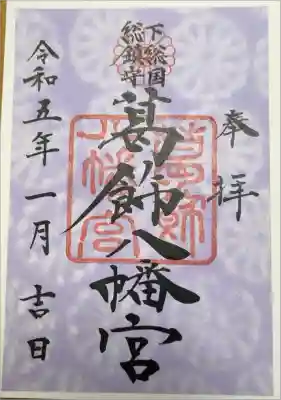 奉拝
下総国
総鎮守
葛飾八幡宮
令和五年一月吉日